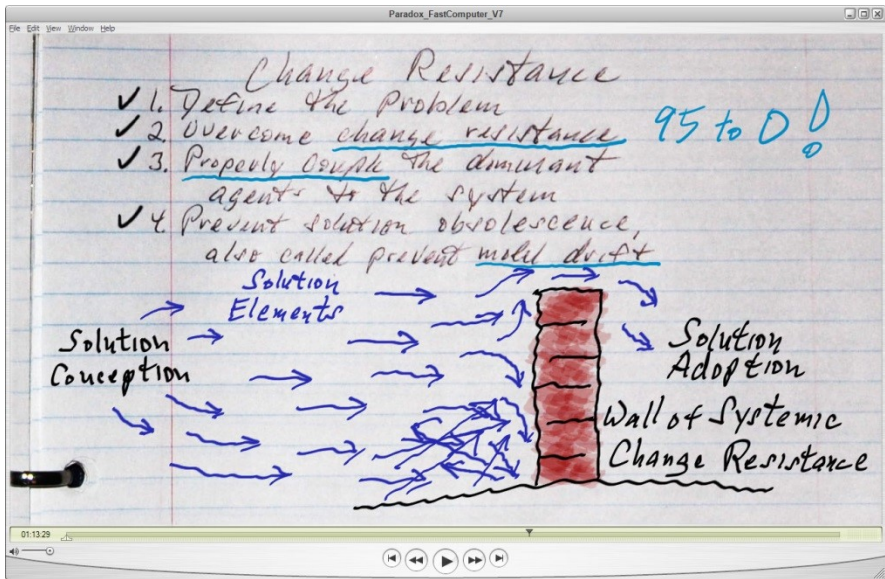 Paradox_FastComputer_V7
File Edit View Window Help
Change Resistance
✓ 1. Define the Problem
✓ 2. Overcome change resistance
95 to 0!
✓ 3. Properly Couple the dominant
agents to the system
✓ 4. Prevent solution obsolescence,
also called prevent model drift
Solution
Elements
Solution
Conception
Solution
Adoption
Wall of Systemic
Change Resistance
01:13:29